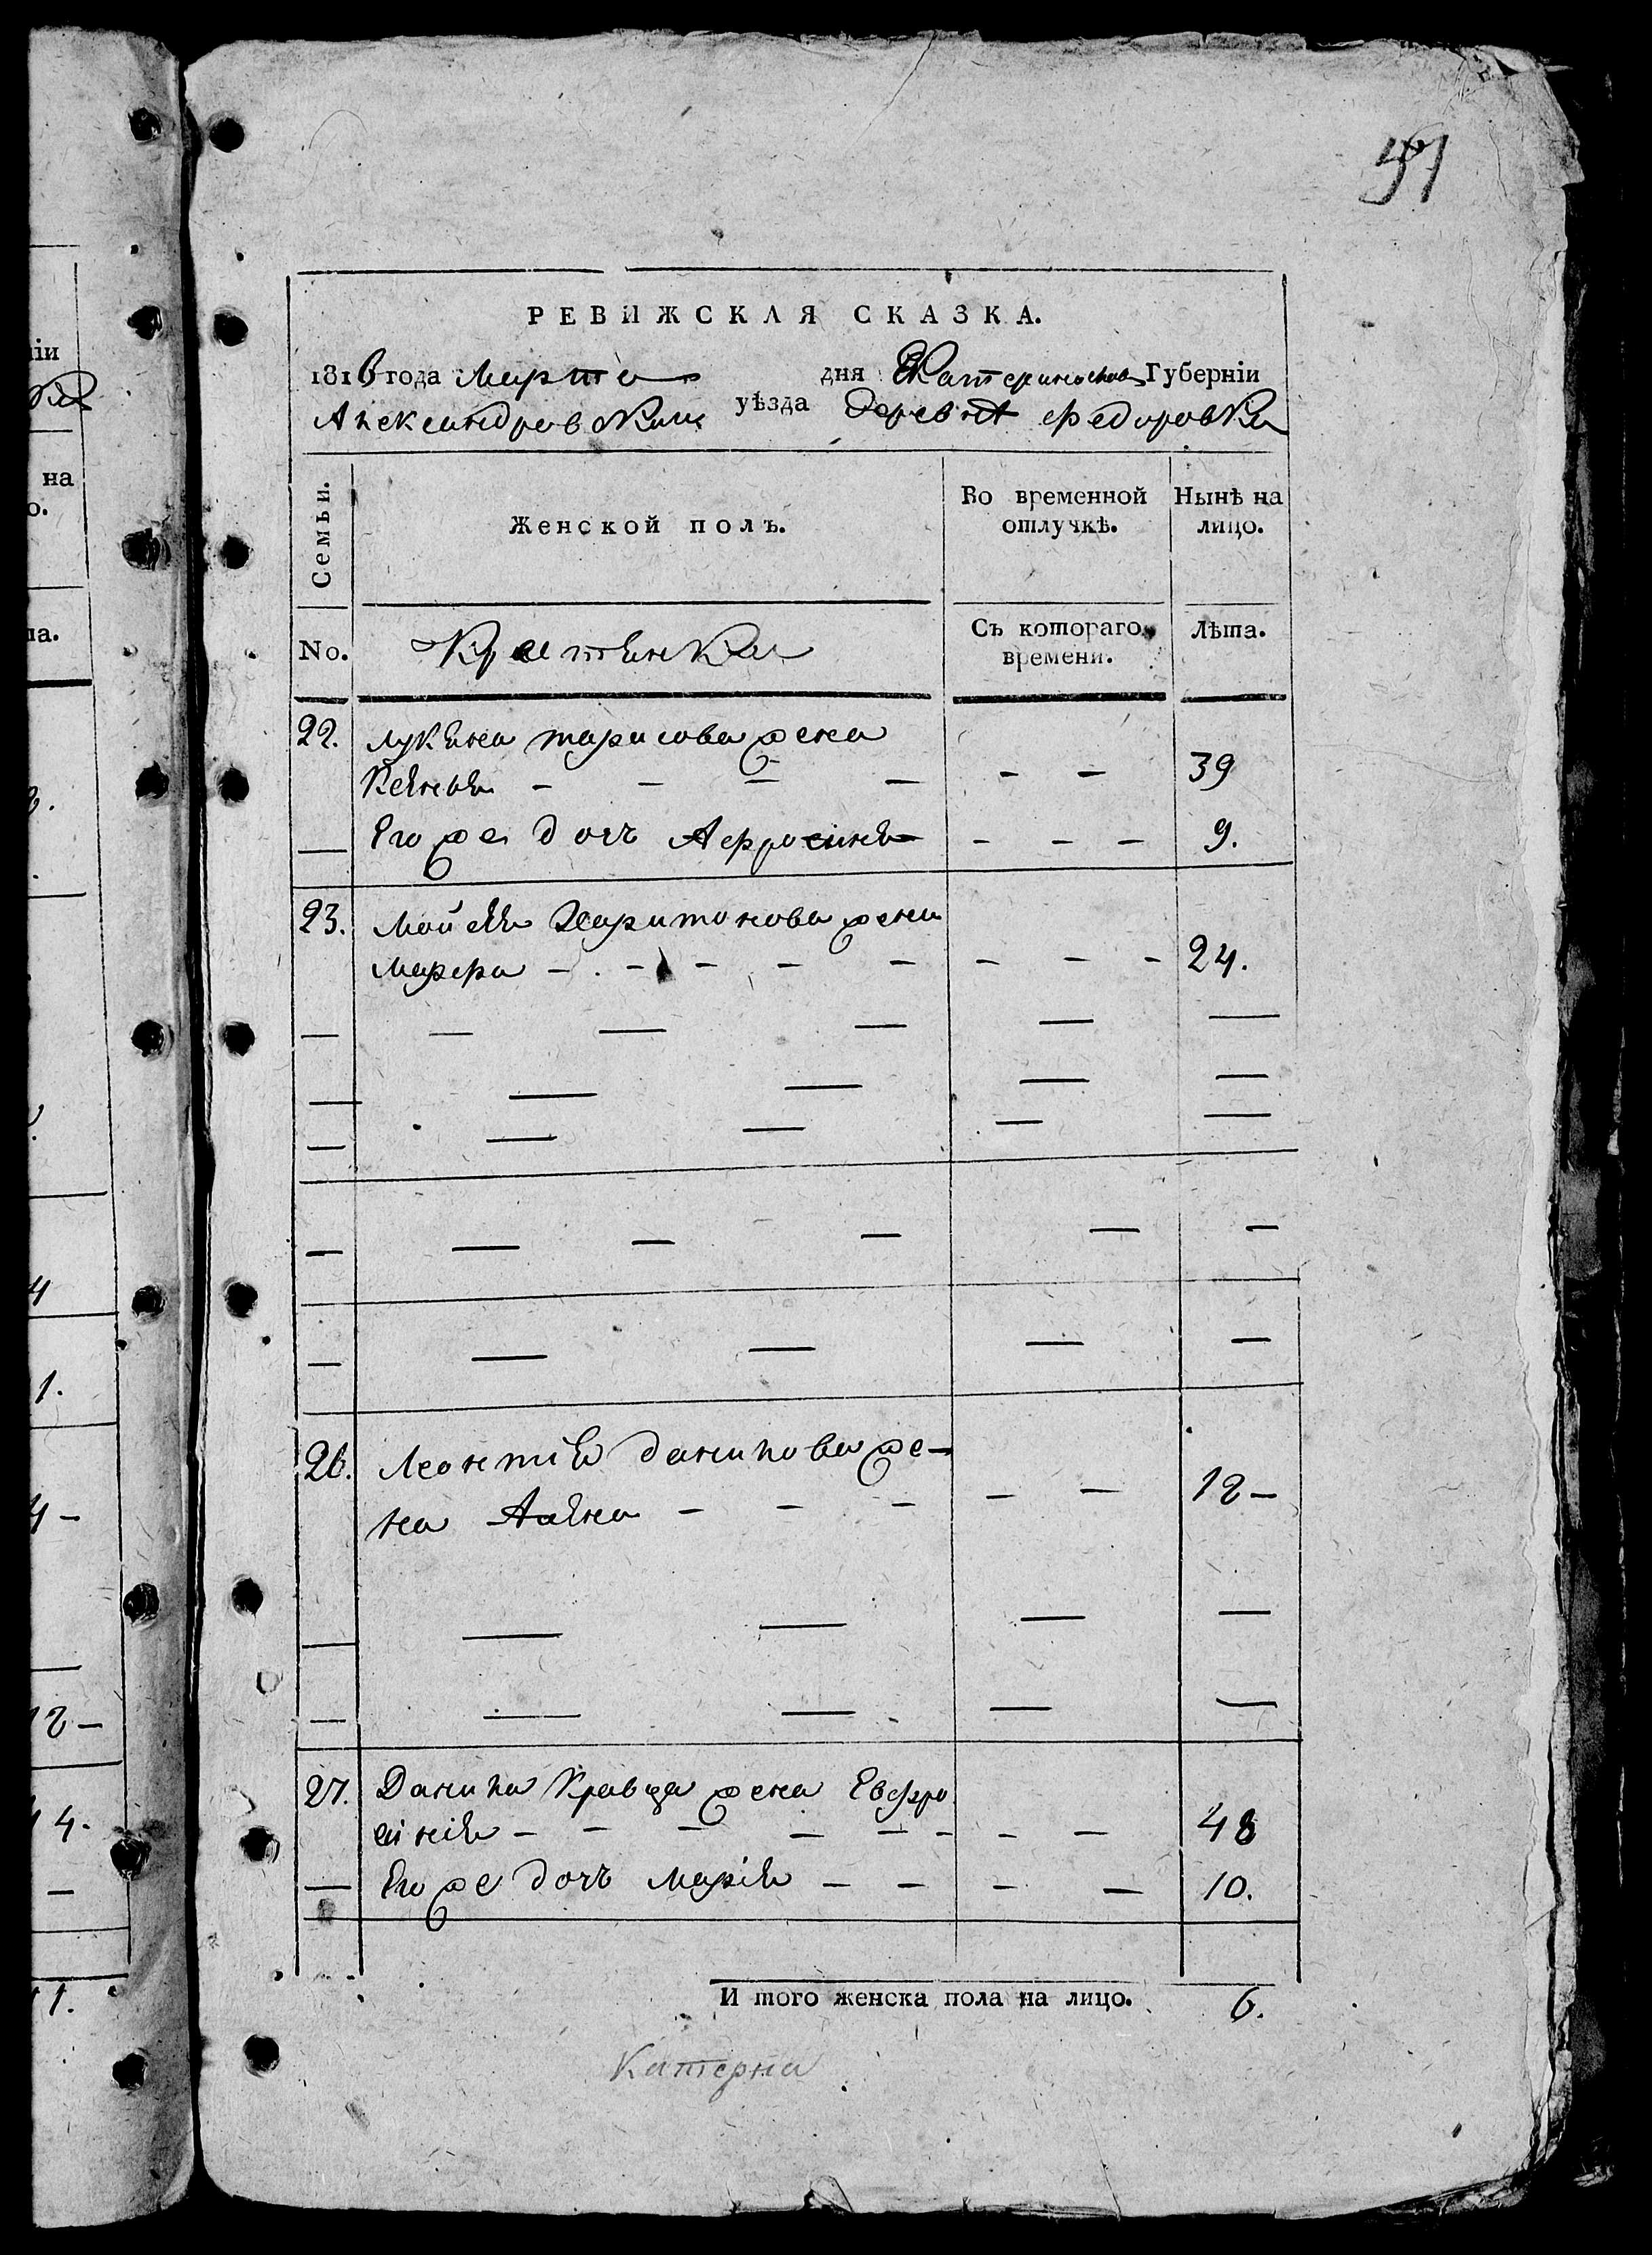 іи
на
о.
ла.
4
1.
4 –
12 –
14.
11.
57
РЕВИЖСКАЯ СКАЗКА.
1816 года Марта дня Екатеринослав Губерніи
Александровскаго уѣзда деревнѣ Федоровки
Семьи.
Женской полъ.
Во временной отлучкѣ.
Нынѣ на лицо.
No.
Съ котораго времени.
Лѣта.
22. Лукяна тарасова жена
— — — — — — 39
Его же дочь Афросиня — — — 9.
23. Мойсея Харитонова жена
Марфа — — — — — — — — 24.
26. Леонтія данилова же-
на — — — — — 12 —
27. Данила Кравца жена Евфро
синія — — — — — — — — 48
Его же дочь Марія — — — — 10.
И того женска пола на лицо. 6.
Катерна